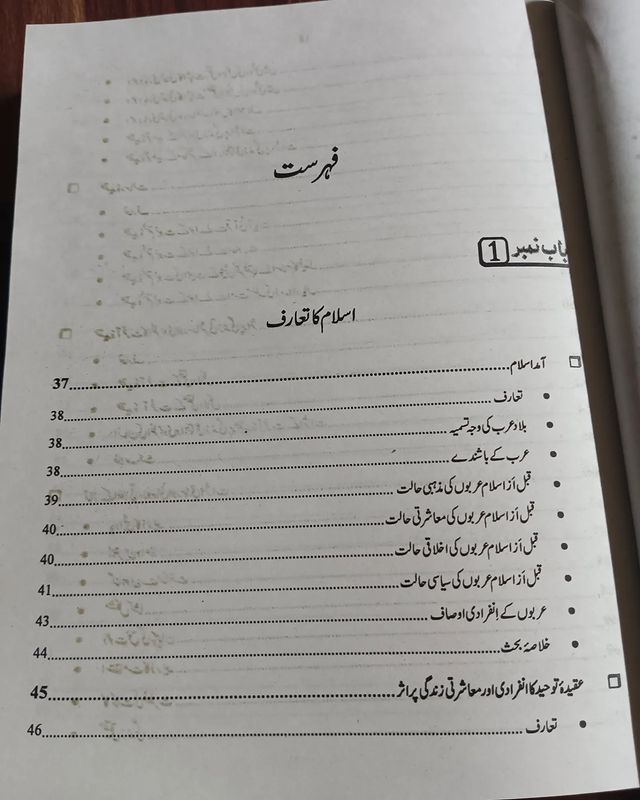 فہرست
باب نمبر 1
اسلام کا تعارف
آمد اسلام 37
تعارف 38
بلاد عرب کی وجہ تسمیہ 38
عرب کے باشندے 38
قبل اَز اسلام عربوں کی مذہبی حالت 39
قبل اَز اسلام عربوں کی معاشرتی حالت 40
قبل اَز اسلام عربوں کی اخلاقی حالت 40
قبل اَز اسلام عربوں کی سیاسی حالت 41
عربوں کے اِنفرادی اوصاف 43
خلاصۂ بحث 44
عقیدۂ توحید کا انفرادی اور معاشرتی زندگی پر اثر 45
تعارف 46